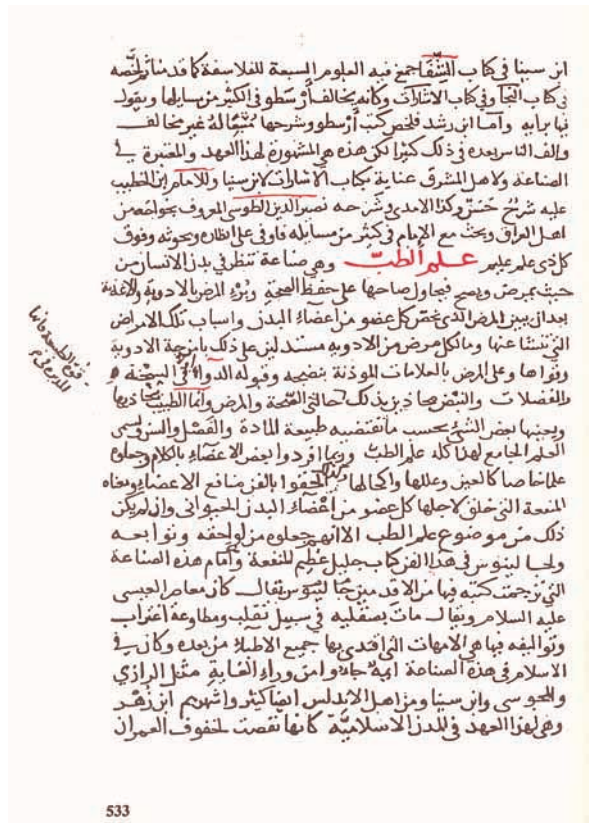 ابن سينا في كتاب الشفا جمع فيه العلوم السبعة للفلاسفة كما قدمناه ولخصه
في كتاب النجا وفي كتاب الاشارات وكانه يخالف أرسطو في الكثير من مسايلها ويقول
فيها برايه وأما ابن رشد فلخص كتب أرسطو وشرحها متبعا له غير مخالف
والف الناس بعده في ذلك كثيرا لكن هذه هي المشهورة لهذا العهد والمعتبرة في
الصناعة ولاهل المشرق عناية بكتاب الاشارات لابن سينا وللامام ابن الخطيب
عليه شرح حسن وكذا الامدي وشرحه نصير الدين الطوسي المعروف بخواجه من
اهل العراق وبحث مع الإمام في كثير من مسايله فاوفى على انظاره وبحوثه وفوق
كل ذي علم عليم علم الطب وهي صناعة تنظر في بدن الانسان من
حيث يمرض ويصح فيحاول صاحبها على حفظ الصحة وبرء المرض بالادوية والاغذية
بعد ان يبين المرض الذي يخص كل عضو من أعضاء البدن واسباب تلك الامراض
التي تنشا عنها وما لكل مرض من الادوية مستدلين على ذلك بامزجة الادوية
وقواها وعلى المرض بالعلامات الموذنة بنضجه وقبوله الدواء في السجية
والفضلات والنبض محاذين بذلك حالتي الصحة والمرض وانما الطبيب يحاذيها
ويعينها بعض الشي بحسب ما تقتضيه طبيعة المادة والفصل والسن ويسمى
العلم الجامع لهذا كله علم الطب وربما افردوا بعض الاعضاء بالكلام وجعلوه
علما خاصا كالعين وعللها واكحالها وكذا الحقوا بالفن منافع الاعضاء ومعناه
المنفعة التي خلق لاجلها كل عضو من أعضاء البدن الحيواني وان لم يكن
ذلك من موضوع علم الطب الا انهم جعلوه من لواحقه وتوابعه
ولجالينوس في هذا الفن كتاب جليل عظيم المنفعة وأمام هذه الصناعة
التي ترجمت كتبه فيها من الاقدمين جالينوس يقال كان معاصر العيسى
عليه السلام ويقال مات بصقلية في سبيل تقلب ومطاوعة اغتراب
وتواليفه فيها هي الامهات التي اقتدى بها جميع الاطباء من بعده وكان في
الاسلام في هذه الصناعة ايمة جاوا من وراء الغاية مثل الرازي
والمجوسي وابن سينا ومن اهل الاندلس ايضا كثير واشهرهم ابن زهر
وهي لهذا العهد في المدن الاسلامية كانها نقصت لخفوف العمران
قوة الطبيعة فانها
533